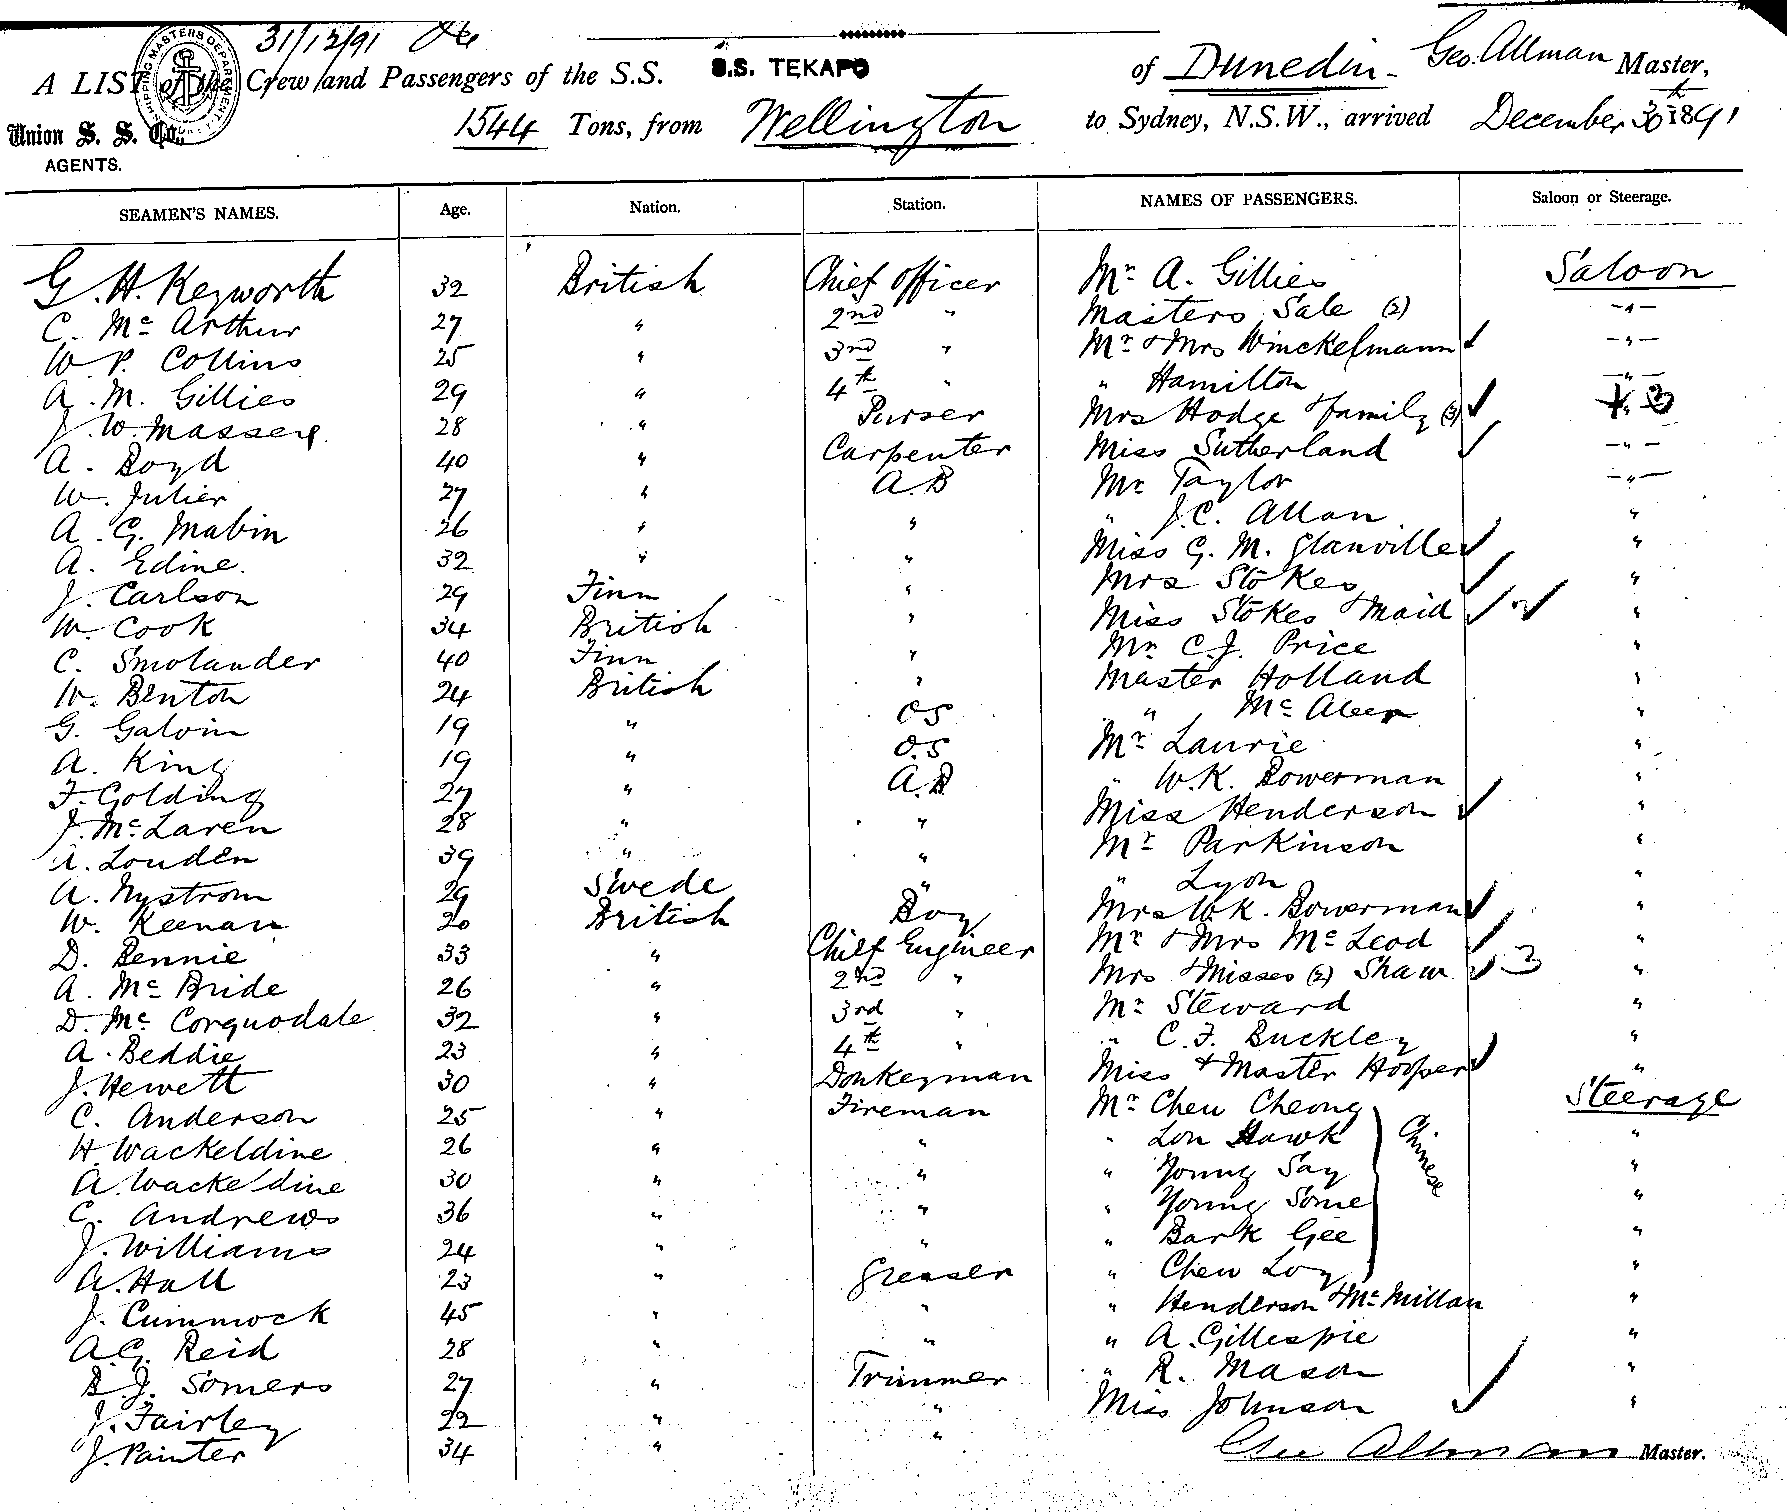 31/12/91
SHIPPING MASTERS DEPARTMENT
A LIST of the Crew and Passengers of the S.S. S.S. TEKAPO of Dunedin Geo. Allman Master,
Union S. S. Co., 1544 Tons, from Wellington to Sydney, N.S.W., arrived December 30th 1891
AGENTS.
SEAMEN'S NAMES. Age. Nation. Station. NAMES OF PASSENGERS. Saloon or Steerage.
G. H. Keyworth 32 British Chief Officer Mr A. Gillies Saloon
C. Mc Arthur 27 " 2nd " Masters Sale (2) "
W. P. Collins 25 " 3rd " Mr & Mrs Winckelmann "
A. M. Gillies 29 " 4th " " Hamilton "
J. W. Massey 28 " Purser Mrs Hodge & family (3) 3
A. Boyd 40 " Carpenter Miss Sutherland "
W. Julier 27 " A.B Mr Taylor "
A. G. Mabin 26 " " " J.C. Allan "
A. Edine. 32 " " Miss G. M. Glanville "
J. Carlson 29 Finn " Mrs Stokes "
W. Cook 34 British " Miss Stokes & Maid 2 "
C. Smolander 40 Finn " Mr C.J. Price "
W. Benton 24 British " Master Holland "
G. Galvin 19 " OS " "
A. King 19 " O.S Mr Laurie "
F. Golding 27 " A.B " W.K. Bowerman "
J. Mc Laren 28 " " Miss Henderson "
A. Louden 39 " " Mr Parkinson "
A. Nystrom 29 Swede " " Lyon "
W. Keenan 20 British Boy Mrs W.K. Bowerman "
D. Rennie 33 " Chief Engineer Mr & Mrs Mc Leod "
A. Mc Bride 26 " 2nd " Mrs & Misses (2) Shaw 3 "
D. Mc Corquodale 32 " 3rd " Mr Steward "
A. Beddie 23 " 4th " " C. F. Buckley "
J. Hewett 30 " Donkeyman Miss & Master Hooper "
C. Anderson 25 " Fireman Mr Chew Cheong Steerage
H. Wackeldine 26 " " " Lon Hawk Chinese "
A. Wackeldine 30 " " " Young Say "
C. Andrews 36 " " " Young Some "
J. Williams 24 " " " Bark Gee "
A. Hall 23 " Greaser " Chew Loy "
J. Cummock 45 " " " Henderson & Mc Millan "
A.G. Reid 28 " " " A. Gillespie "
B. J. Somers 27 " Trimmer " R. Mason "
J. Fairley 22 " " Miss Johnson "
J. Painter 34 " " Geo Allman Master.